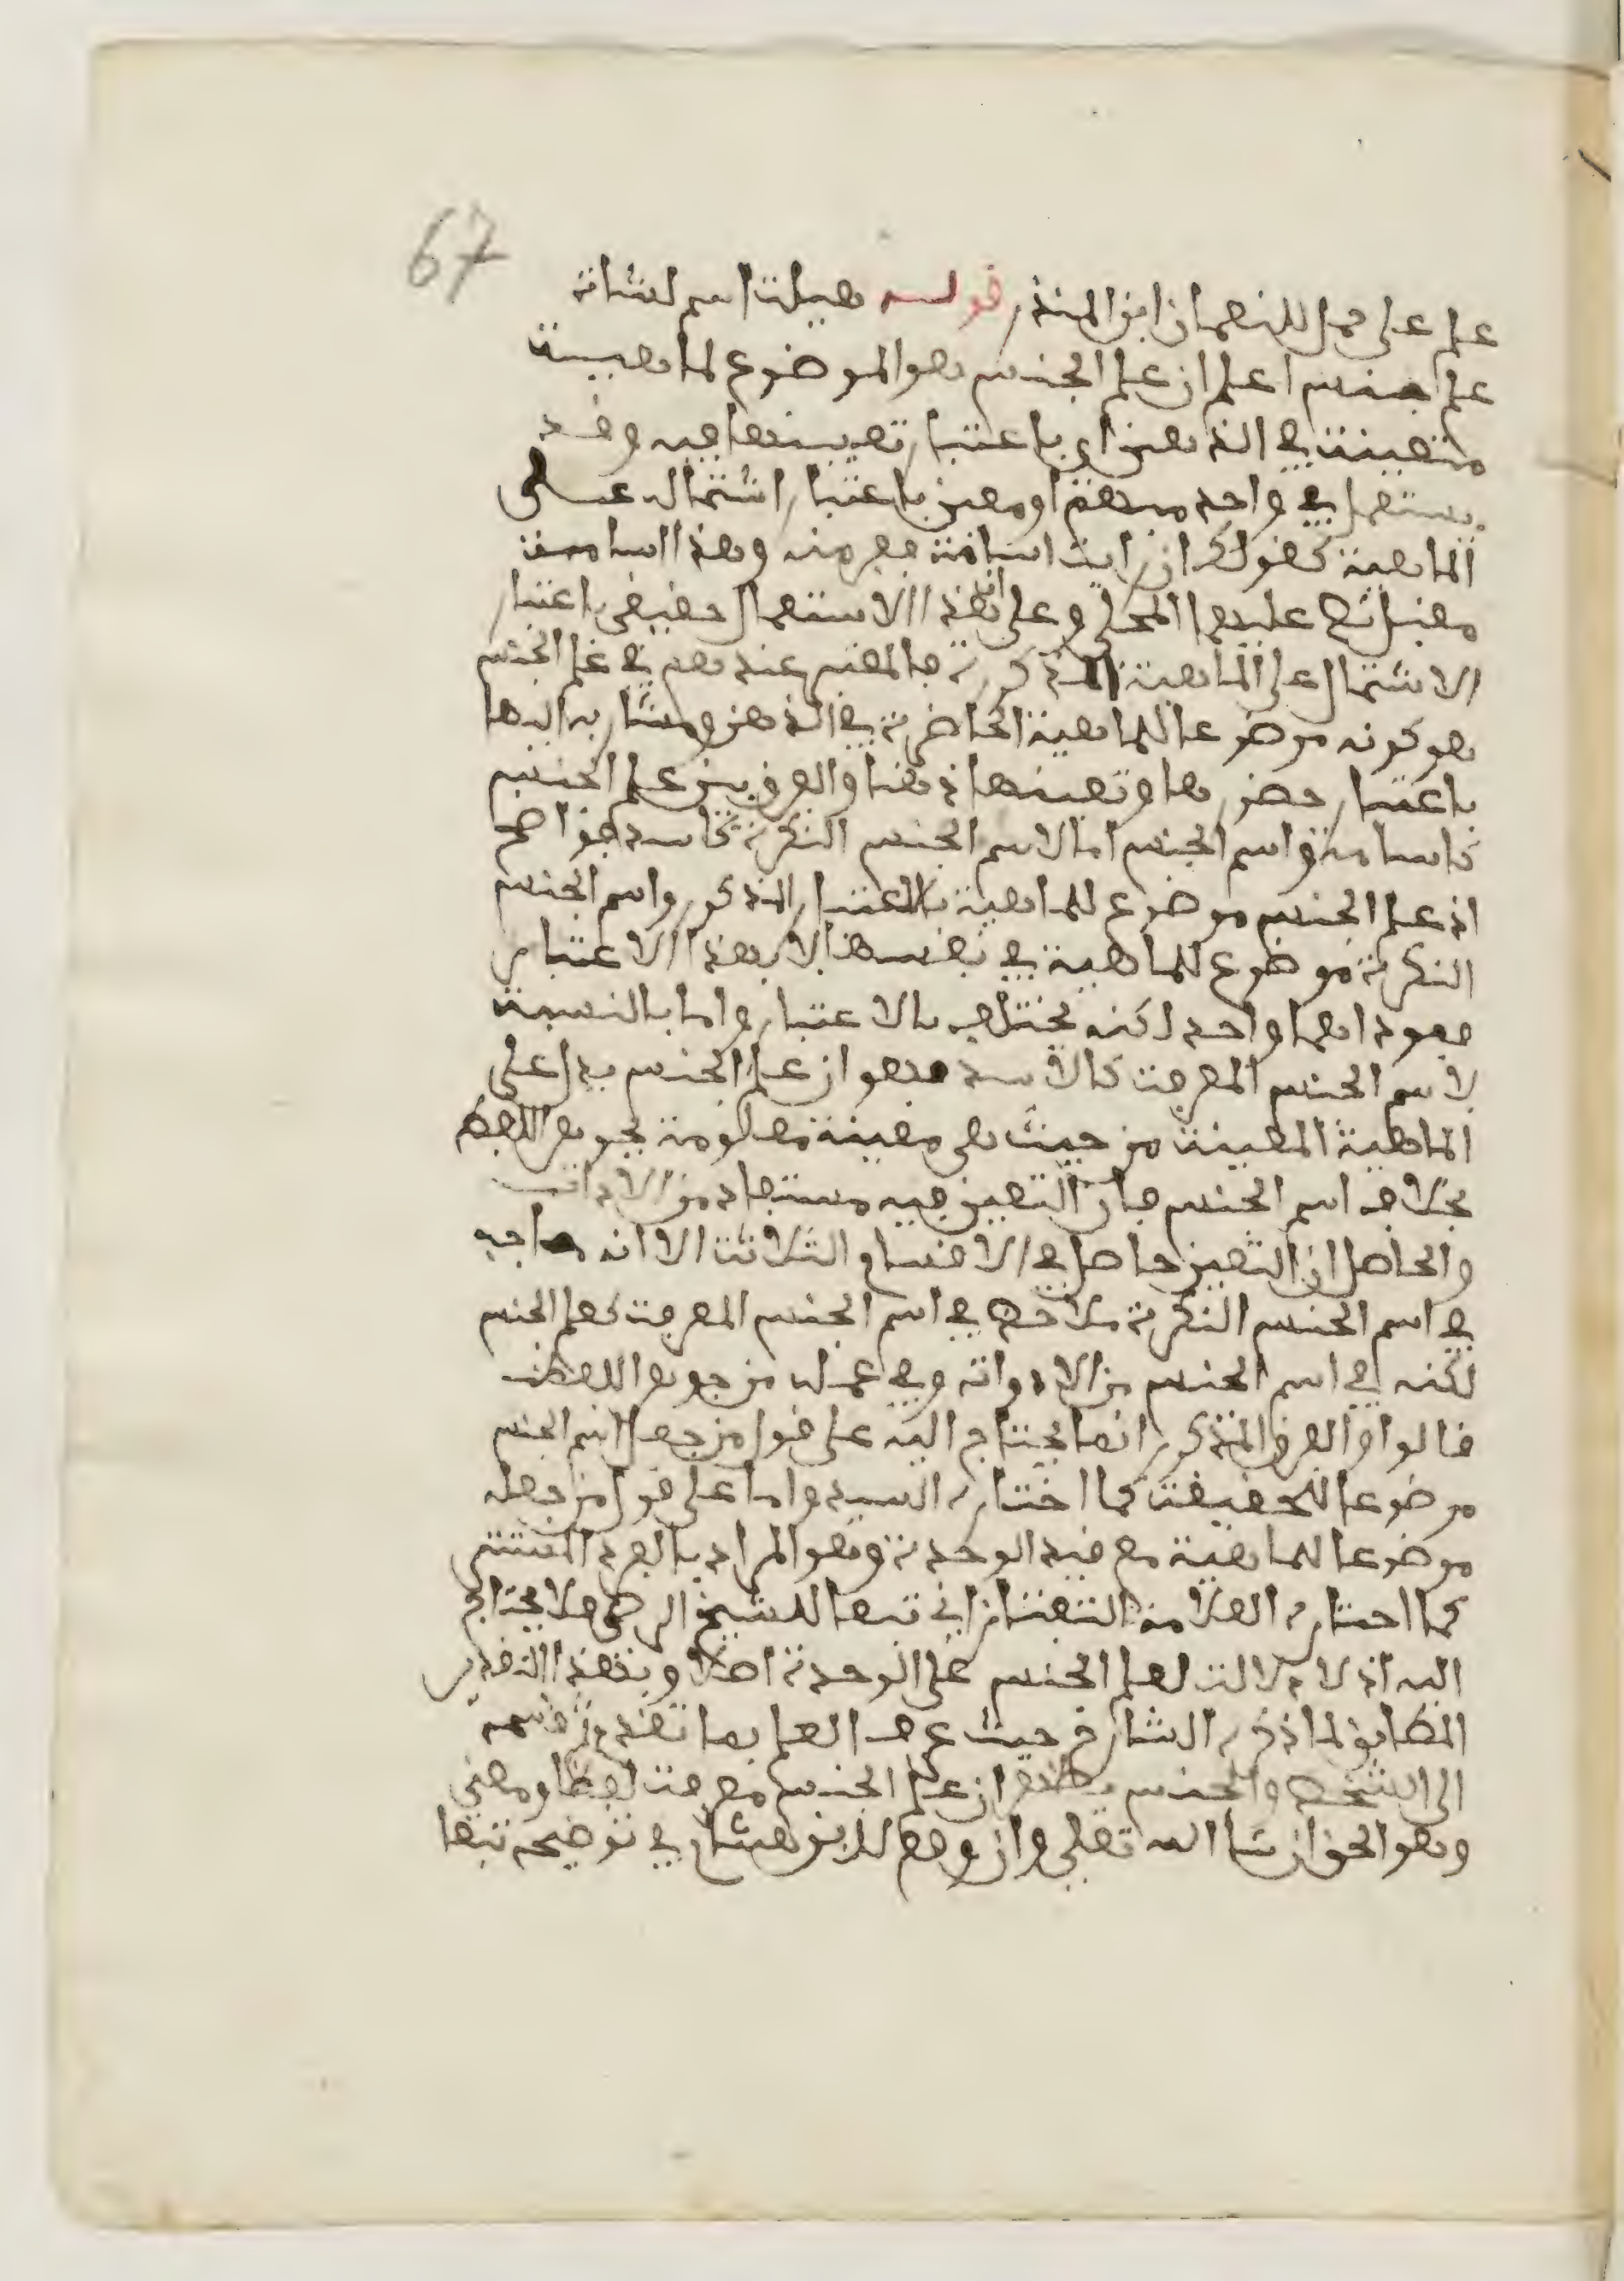 67
علم على جمل للنعمان ابن المنذر قوله هيلة اسم لشاة
علم جنس اعلم ان علم الجنس هو الموضوع لماهية
متعينة في الذهن اي باعتبار تعيينها فيه وقد
يستعمل في واحد مبهم او معين باعتبار اشتماله على
الماهية كقولك ان رايت اسامة ففر منه وهذا اسامة
مقبلا نص عليها المحلي وعلى ان هذا الاستعمال حقيقي باعتبار
الاشتمال على الماهية المذكورة فالمعتبر عندهم في علم الجنس
هو كونه موضوعا للماهية الحاضرة في الذهن ومشار به اليها
باعتبار حضورها وتعينها ذهنا والفرق بين علم الجنس
كاسامة واسم الجنس اما لاسم الجنس النكرة كاسد فواضح
اذ علم الجنس موضوع للماهية بالاعتبار المذكور واسم الجنس
النكرة موضوع للماهية في نفسها لا بهذا الاعتبار
فمؤداهما واحد لكنه مختلف بالاعتبار واما بالنسبة
لاسم الجنس المعرفة كالاسد فهو ان علم الجنس يدل على
الماهية المعينة من حيث هي معينة معلومة بجوهر اللفظ
بخلاف اسم الجنس فان التعين فيه مستفاد من الاداة
والحاصل ان التعين حاصل في الاقسام الثلاثة الا انه
في اسم الجنس النكرة ملاحظ في اسم الجنس المعرفة كعلم الجنس
لكنه في اسم الجنس من الادواة وفي علمه من جوهر اللفظ
قالوا والفرق المذكور انما يحتاج اليه على قول من جعل اسم الجنس
موضوعا للحقيقة كما اختاره السيد واما على قول من جعله
موضوعا للماهية مع قيد الوحدة وهو المراد بالفرد المنتشر
كما اختاره العلامة التفتازاني تبعا للشيخ الرضي فلا يحتاج
اليه اذ لا دلالة لعلم الجنس على الوحدة اصلا وبهذا التقدير
المطابق لما ذكره الشارح حيث عرف العلم بما تقدم ثم قسمه
الى الشخص والجنس يظهر ان علم الجنس معرفة لفظا ومعنى
وهو الحق ان شا الله تعلى وان وقع لابن هشام في توضيحه تبعا